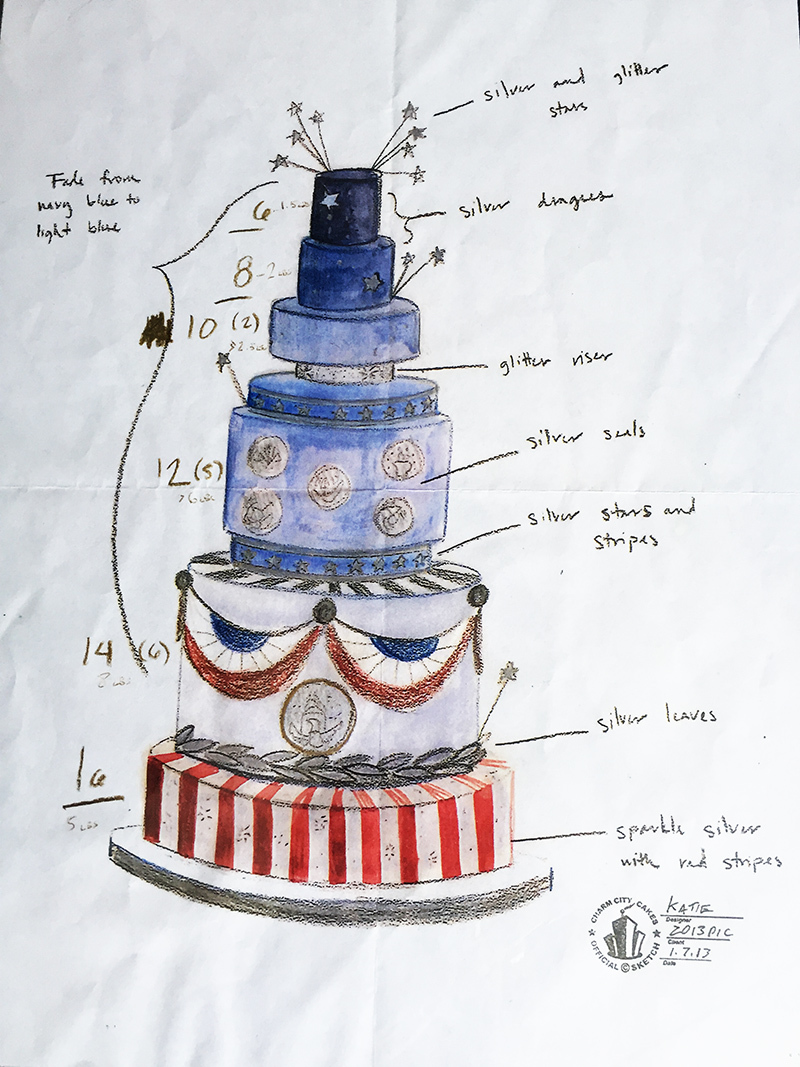 silver and glitter
stars
Fade from
navy blue to
light blue
6 - 1.5 LBS
silver dragees
8 - 2 LBS
10 (2)
>2.5 LBS
glitter riser
silver seals
12 (5)
>6 LBS
silver stars and
stripes
14 (6)
silver leaves
16
5 LBS
sparkle silver
with red stripes
CHARM CITY CAKES
OFFICIAL © SKETCH
KATIE
Designer
2013 PIC
Event
1.7.13
Date